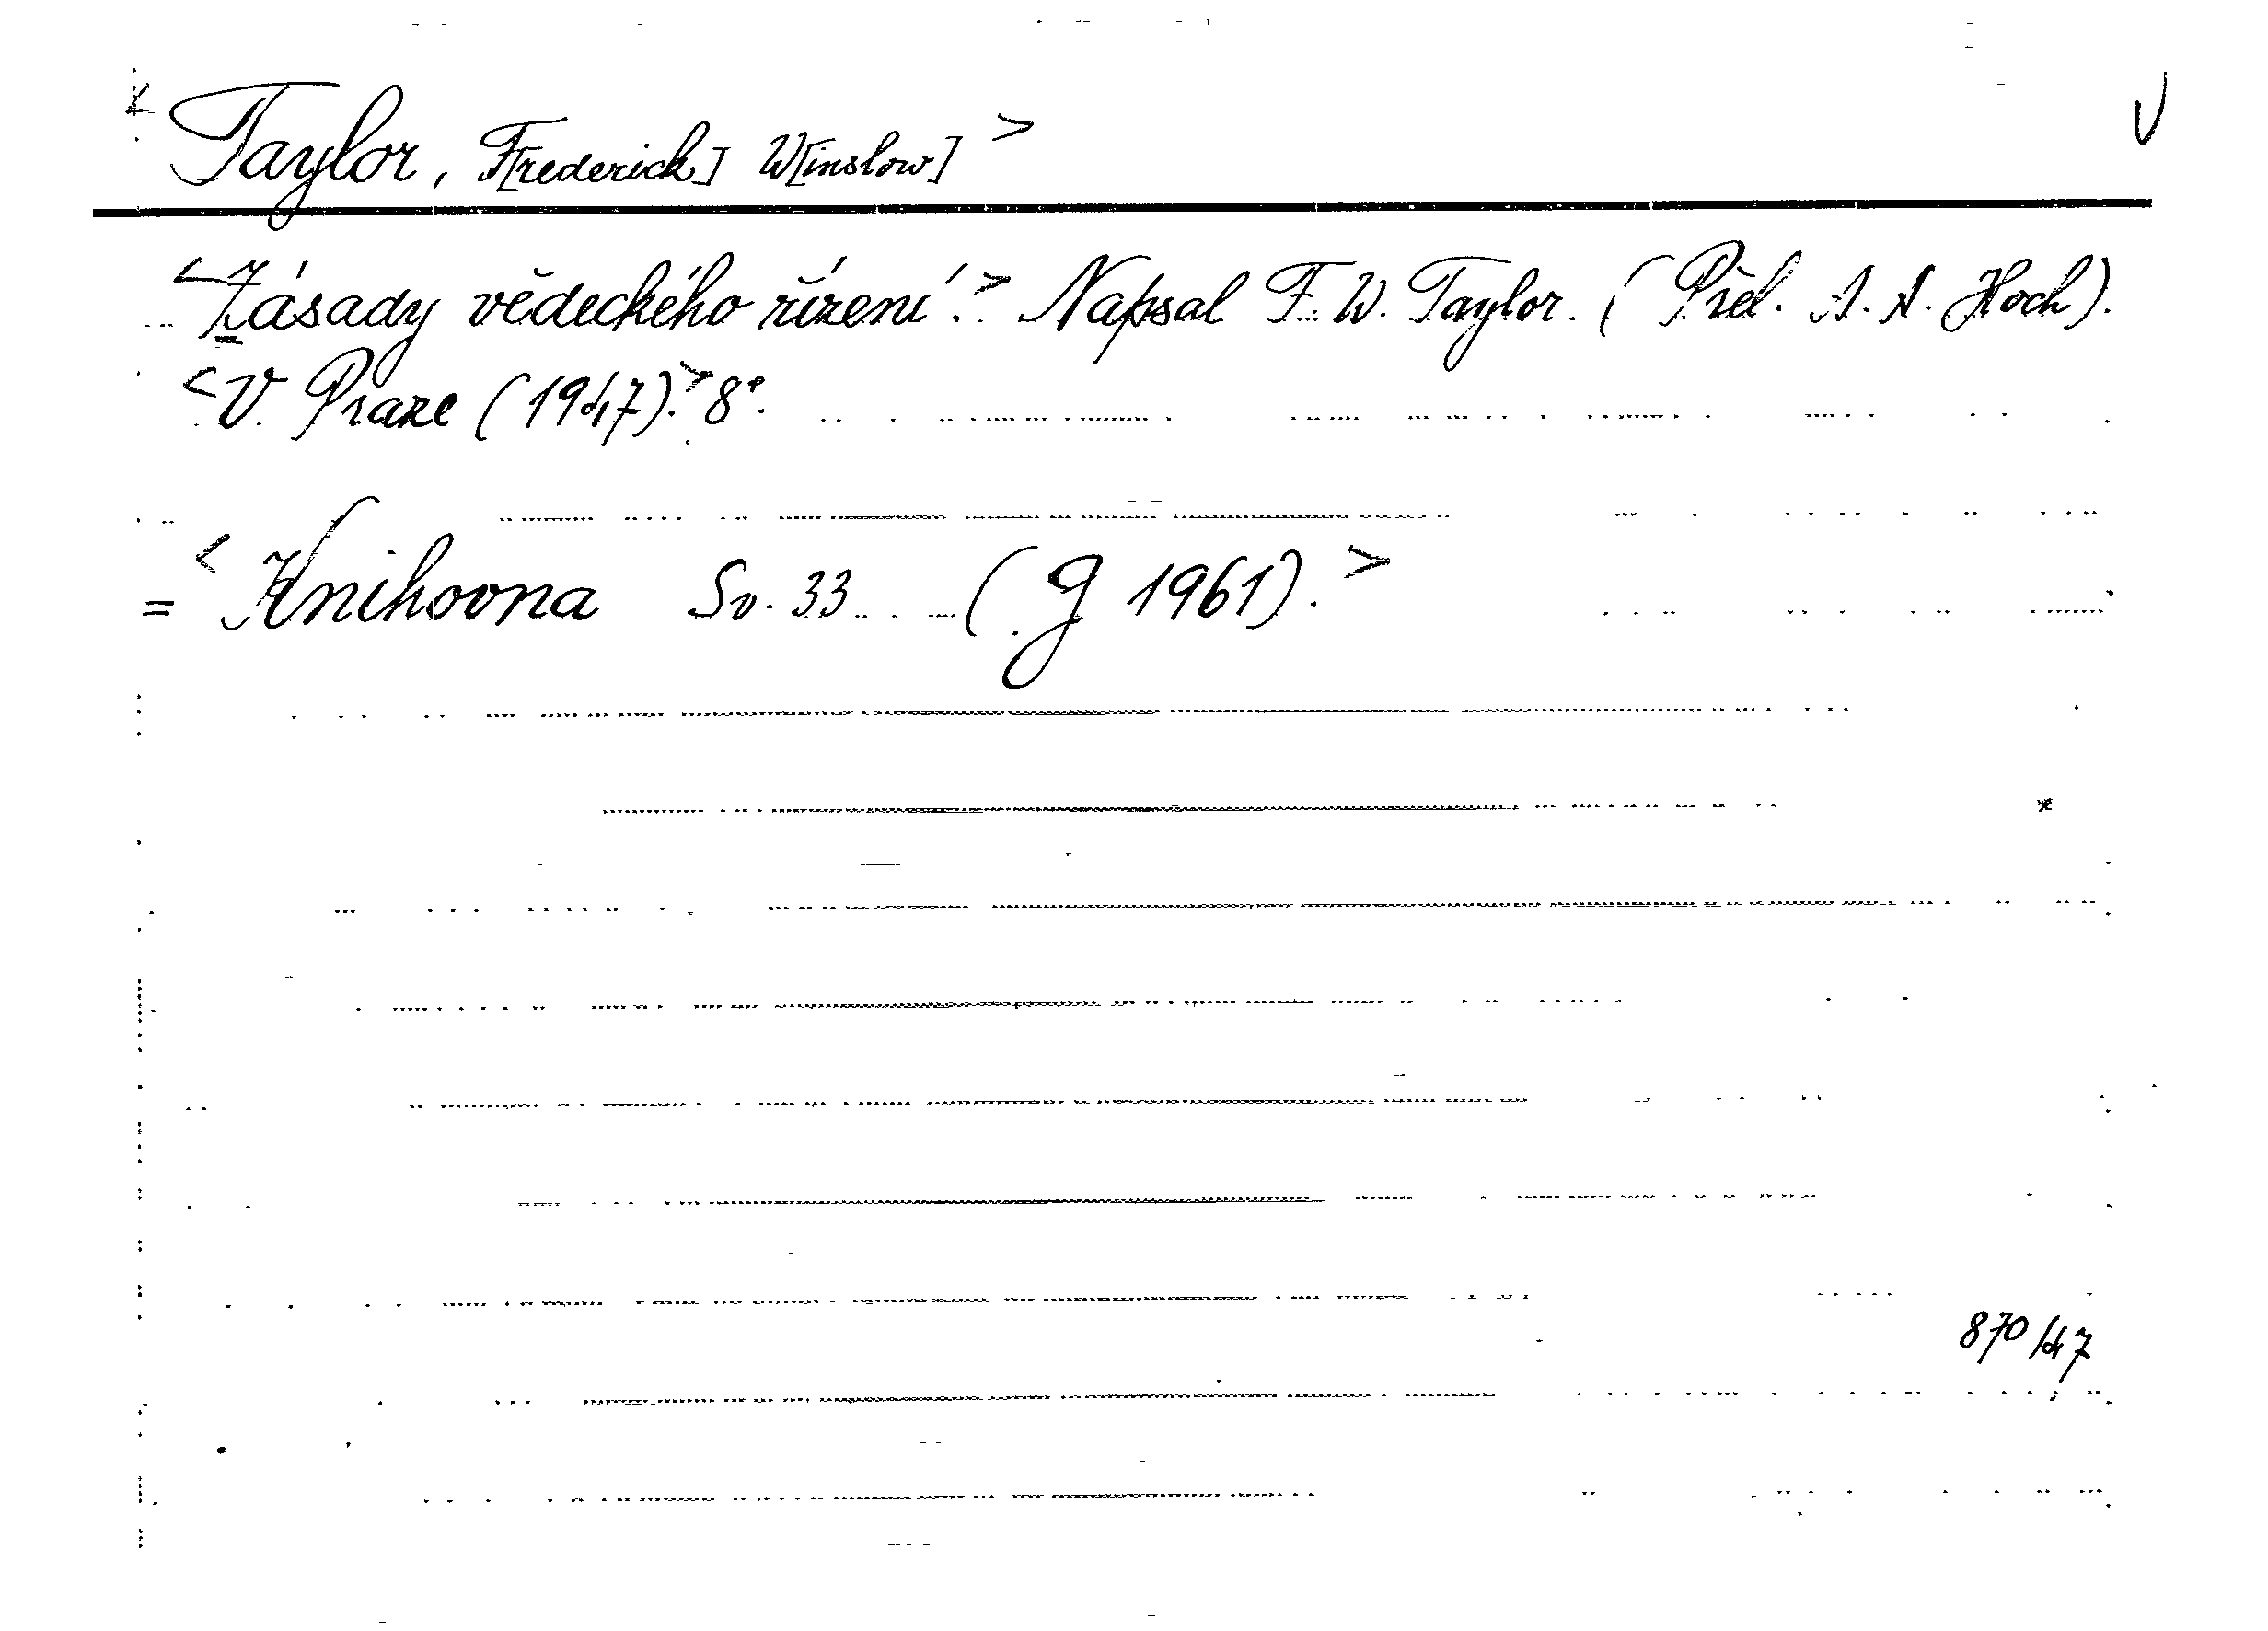 < Taylor, F[rederick] W[inslow] >
< Zásady vědeckého řízení. > Napsal F. W. Taylor. (Přel. A. A. Hoch).
< V Praze (1947). > 8°.
= < Knihovna Sv. 33 (g 1961). >
870/47